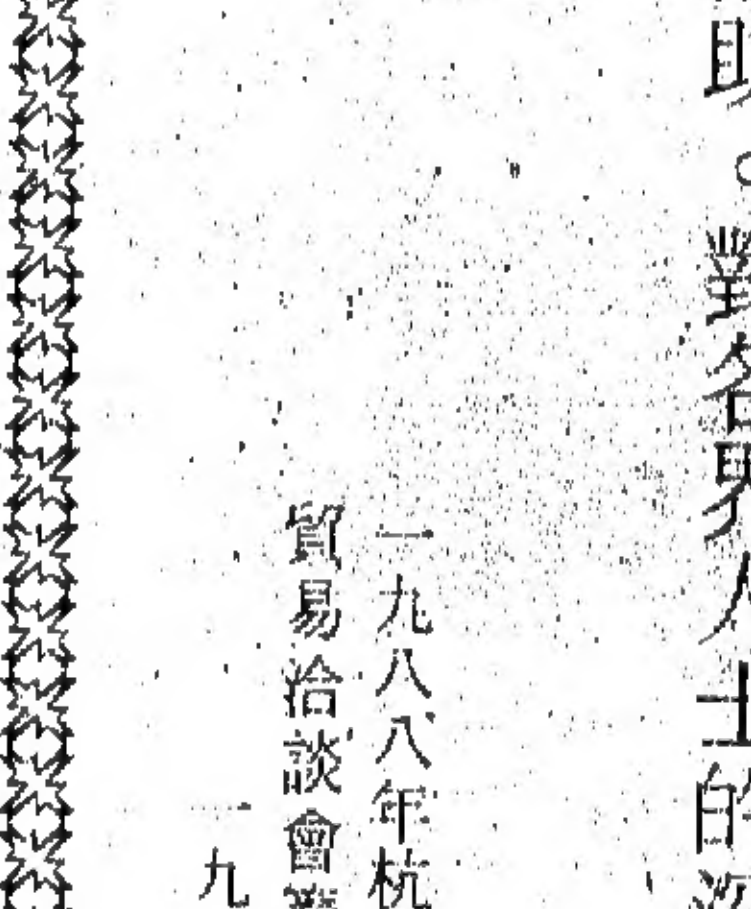 助。對各界人士的
一九八八年杭
貿易洽談會
一九